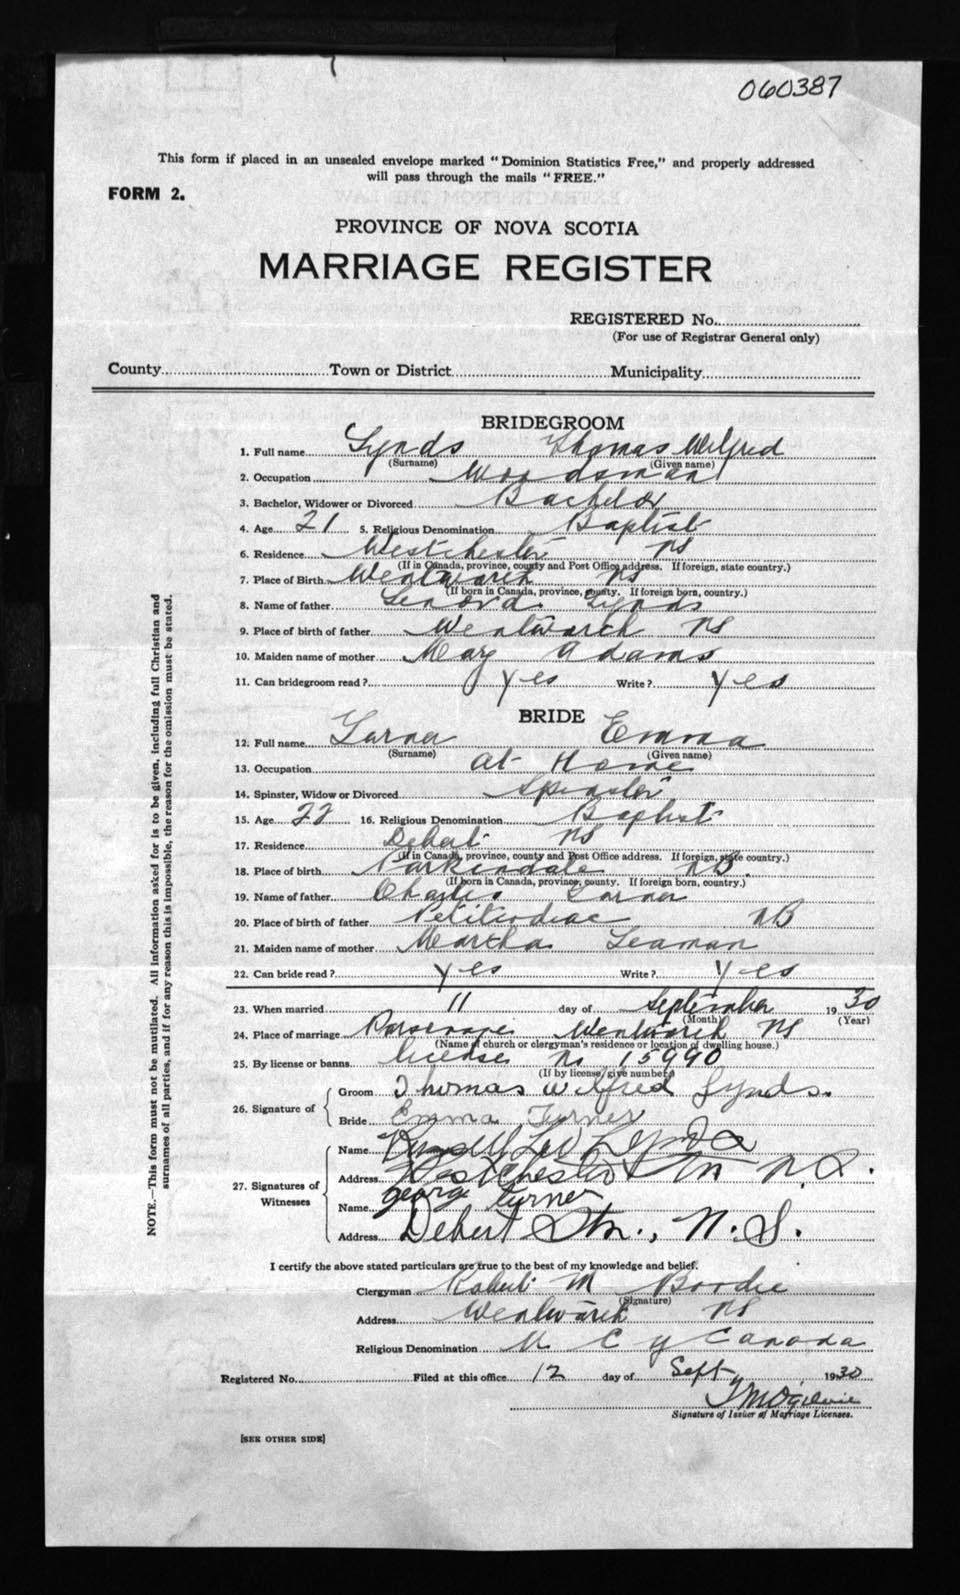 060387
This form if placed in an unsealed envelope marked "Dominion Statistics Free," and properly addressed
will pass through the mails "FREE."
FORM 2.
PROVINCE OF NOVA SCOTIA
MARRIAGE REGISTER
REGISTERED No.
(For use of Registrar General only)
County Town or District Municipality
BRIDEGROOM
1. Full name Lynds Thomas Wilfred
(Surname) (Given name)
2. Occupation Woodsman
3. Bachelor, Widower or Divorced Bachelor
4. Age 21 5. Religious Denomination Baptist
6. Residence Westchester NS
(If in Canada, province, county and Post Office address. If foreign, state country.)
7. Place of Birth Wentworth NS
(If born in Canada, province, county. If foreign born, country.)
8. Name of father Lenord Lynds
9. Place of birth of father Wentworth NS
10. Maiden name of mother Mary Adams
11. Can bridegroom read? Yes Write? Yes
BRIDE
12. Full name Turner Emma
(Surname) (Given name)
13. Occupation at Home
14. Spinster, Widow or Divorced Spinster
15. Age 22 16. Religious Denomination Baptist
17. Residence Debert NS
(If in Canada, province, county and Post Office address. If foreign, state country.)
18. Place of birth Parkindale NB.
(If born in Canada, province, county. If foreign born, country.)
19. Name of father Charles Turner
20. Place of birth of father Petitcodiac NB
21. Maiden name of mother Martha Leaman
22. Can bride read? yes Write? yes
23. When married 11 day of September 1930
(Month) (Year)
24. Place of marriage Parsonage Wentworth NS
(Name of church or clergyman's residence or location of dwelling house.)
25. By license or banns license No 15990
(If by license, give number.)
26. Signature of
Groom Thomas Wilfred Lynds.
Bride Emma Turner
27. Signatures of Witnesses
Name Lynds
Address Westchester Stn N.S.
Name George Turner
Address Debert Stn., N.S.
I certify the above stated particulars are true to the best of my knowledge and belief.
Clergyman Robert M
(Signature)
Address Wentworth NS
Religious Denomination U C of Canada
Registered No. Filed at this office 12 day of Sept. 1930
TM Ogilvie
Signature of Issuer of Marriage Licenses.
[SEE OTHER SIDE]
NOTE.—This form must not be mutilated. All information asked for is to be given, including full Christian and
surnames of all parties, and if for any reason this is impossible, the reason for the omission must be stated.